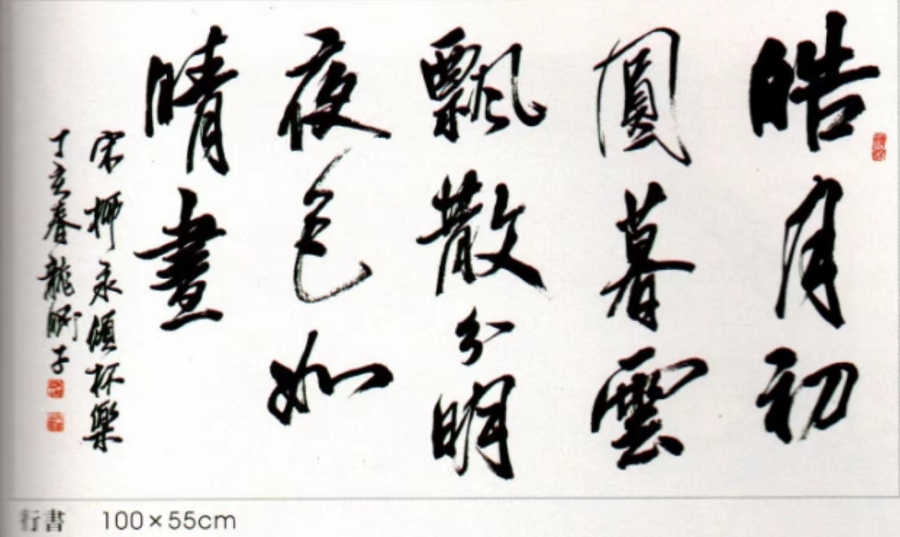 皓月初
圓暮雲
飄散分明
夜色如
晴晝
宋柳永傾杯樂
丁亥春龍
行書 100×55cm